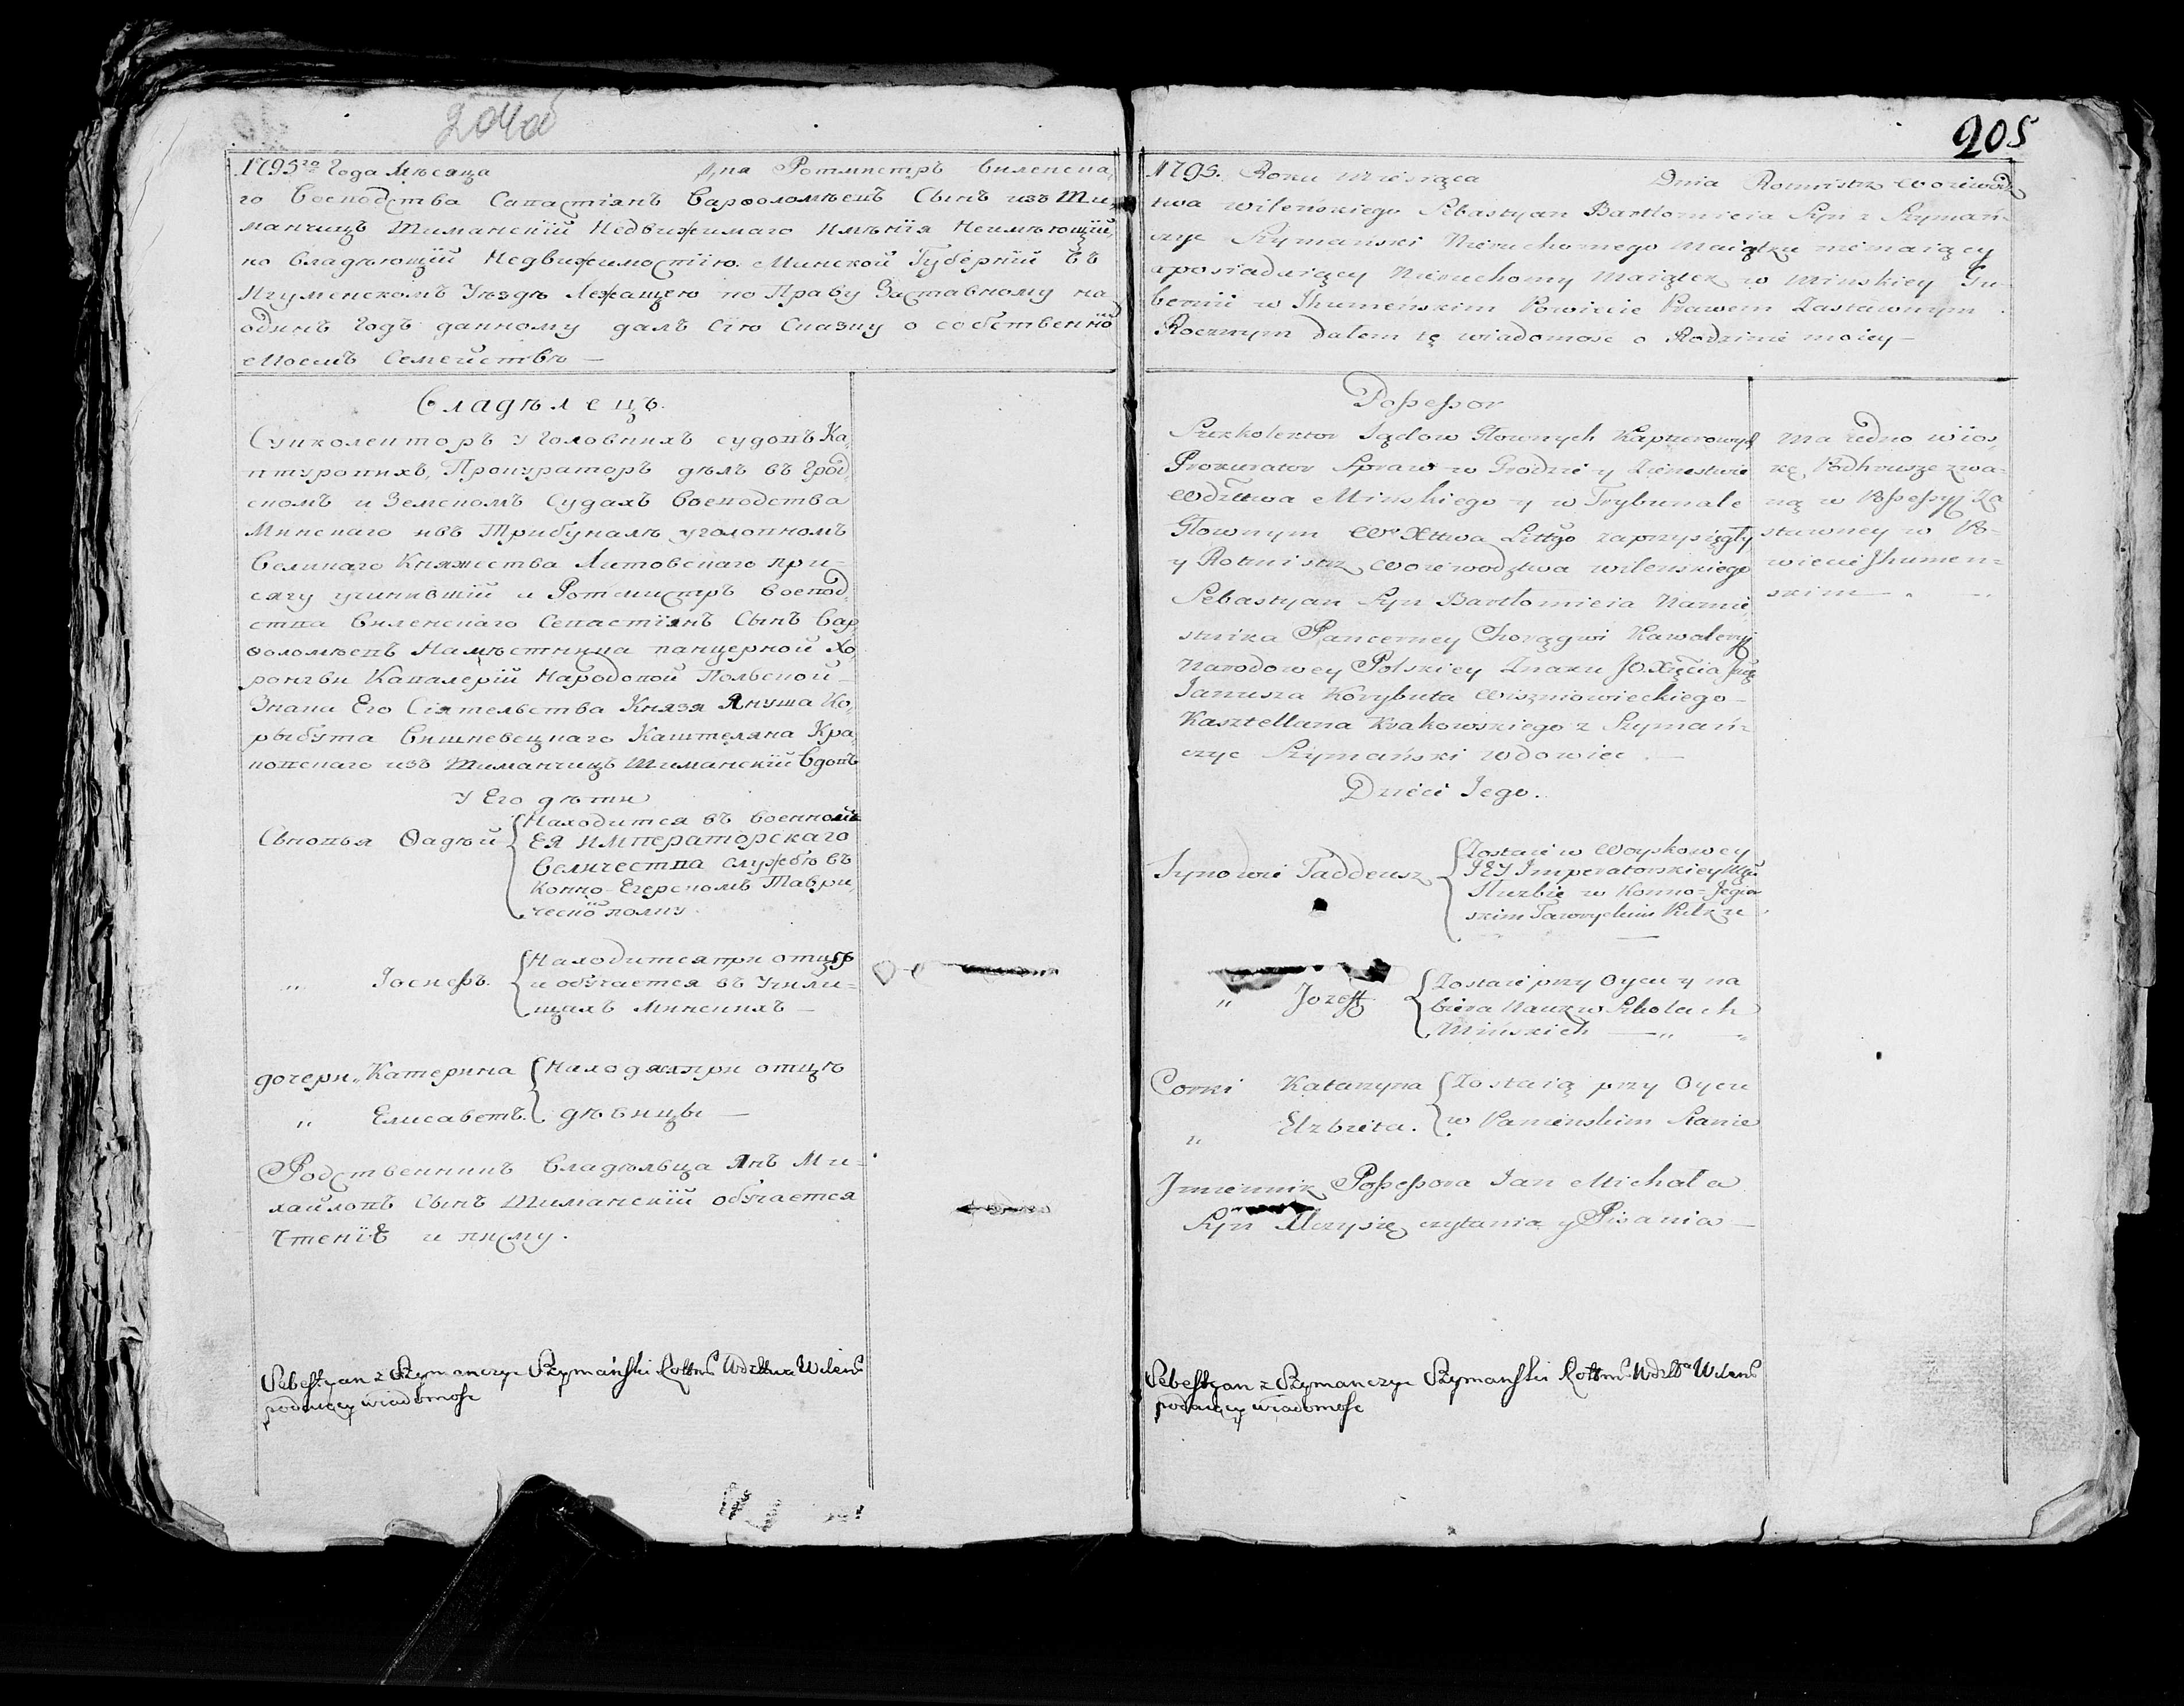 204об
1795го Года Мѣсяца Дня Ротмистръ Виленска,
го Воеводства Сапастіянъ Варфоломѣевъ Сынъ изъ Ши,
манчицъ Шиманскій Недвижимаго Имѣнїя Неимѣющій,
но Владѣющій Недвижимостїю Минской Губерній въ
Игуменскомъ Уѣздѣ Лежащею по Праву Заставному на
одинъ годъ данному далъ Сїю Сказку о собственнö
Моемъ Семействѣ —
Владѣлецъ.
Суколекторъ Уголовнихъ судовъ Ка
птуровихъ, Прокураторъ дѣлъ въ Грод,
скомъ и Земскомъ Судахъ Воеводства
Минскаго и въ Трибуналѣ уголовномъ
Великаго Княжества Литовскаго при-
сягу учинившій и Ротмистръ Воевод,
ства Виленскаго Сепастїянъ Сынъ Вар
ѳоломѣевъ Намѣстника панцерной Хо,
ронгви Кавалерій Народовой Польской
Знаку Его Сіятельства Князя Януша Ко,
рыбута Вишневецкаго Каштеляна Кра,
ковскаго изъ Шиманчицъ Шиманскій Вдовъ
У Его дѣти
Сыновья Ѳадѣй Находится въ военной
Ея Императорскаго
Величества службѣ въ
Конно-Егерскомъ Таври,
ческö полку.
„ Іосифъ. Находится при отцѣ
и обучается въ Учили-
щахъ Минскихъ —
дочери „ Катерина Находяся при отцѣ
„ Елисаветъ. дѣвицы —
Родственникъ Владѣльца Янъ Ми-
хайловъ Сынъ Шиманскій обучается
Чтенїѣ и писму.
Sebestyan z Szymanczyc Szymański Rottms Wdztwa Wilens
podaięcy wiadomosc
205
1795. Roku Miesiąca Dnia Rotmistrz Woiewodz
twa Wileńskiego Sebastyan Bartłomieia Syn z Szymań-
czyc Szymański Nieruchomego Maiątku niemaiący
a posiadaiący Nieruchomy Maiątek w Minskiey Gu-
bernii w Ihumeńskim Powiecie Prawem Zastawnym
Rocznym dałem tę wiadomosc o Rodzinie moiey —
Possessor
Suzkolektor Sądow Głownych Kapturowych
Prokurator Spraw w Grodzie y Ziemstwie
Wdztwa Minskiego y w Trybunale
Głownym Wo Xttwa Littgo zaprzysięgły
y Rotmistrz Woiewodztwa Wilenskiego
Sebastyan Syn Bartłomieia Namie
stnika Pancerney Chorągwi Kawaleryi
Narodowey Polskiey Znaku JO. Xięcia Jmci
Janusza Korybuta Wiszniowieckiego
Kasztellana Krakowskiego z Szymań
czyc Szymański wdowiec . —
Ma iedno wios,
kę, Podhrusze zwa-
ną w Possessyi Za
stawney w Po-
wiecie Jhumen-
skim — .
Dzieci Jego.
Synowie Taddeusz Zostaie w Woyskowey
JEY Imperatorskiey Mci
Słuzbie w Konno-Jegier
skim Tawryckim Pułku
„ Jozeff Zostaie przy Oycu y na
biera Nauk w Szkołach
Mińskich — „
Corki Katarzyna Zostaią przy Oycu
„ Elzbieta. w Panienskim Stanie
Jmiennik Possessora Jan Michała
Syn Uczy się czytania y Pisania —
Sebestyan z Szymanczyc Szymanski Rottms Wdztwa Wilens
podaięcy wiadomosc